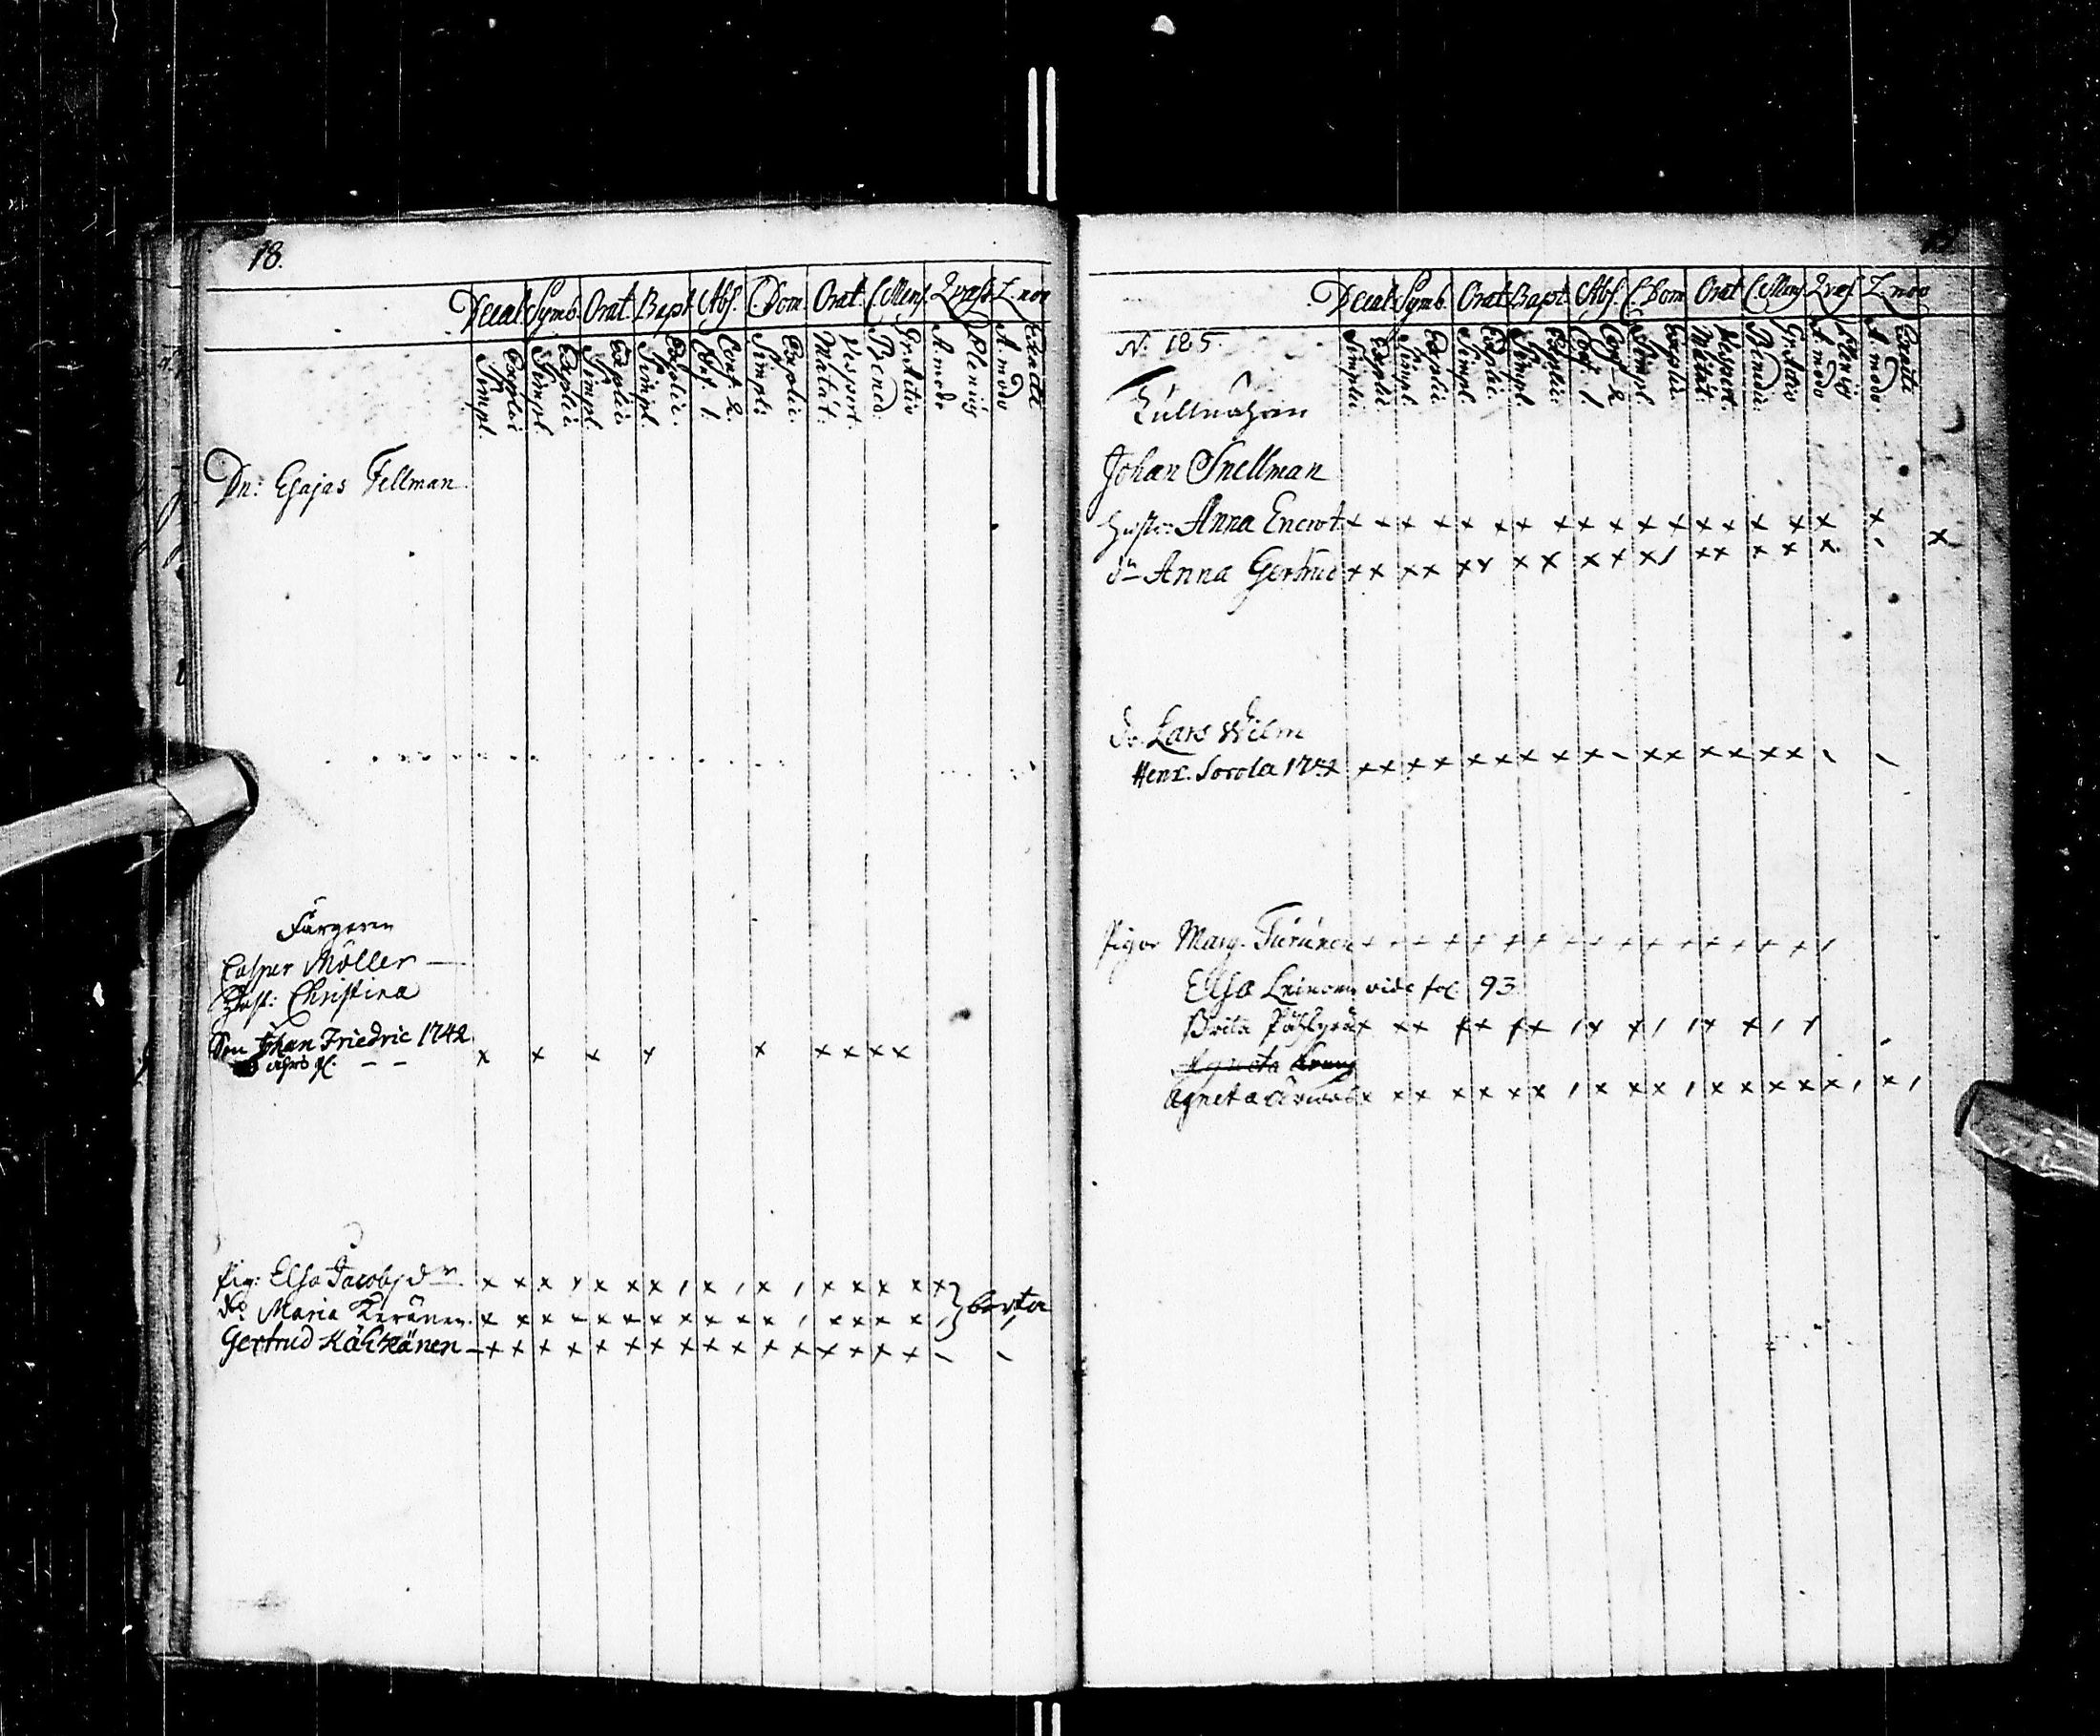 18.
Decal. Symb. Orat. Bapt. Abs. C. Dom. Orat. C. Mens. Quæst. L. nov
Simpl. Explic. Simpl. Explic. Simpl. Explic. Simpl. Explic. Conf. 1. Conf. 2. Simpl: Explic. Matut: Vespert. Bened: Gratio A modo Pleniu A modo Exacte
Dn: Esajas Fellman
Färgaren
Casper Möller —
Hust: Christina
Son Johan Friedric 1742
x x x x x x x x x
Pig: Elsa Jacobsdr x x x x x x x / x / x / x x x x x
Do Maria Keränen. x x x x x x x x x x x / x x x x /
} borta
Gertrud Kähkänen – x x x x x x x x x x x x x x x x – –
Decal. Symb. Orat. Bapt. Abs. C. Dom Orat C. Mens. Quæs L nov
Simplic. Explic. Simpl. Explic. Simpl. Explic. Simpl. Explic: Conf. 1 Conf. 2 Simpl. Explic. Matut: Vespert. Benedic: Gratio A modo Pleniu A modo. Exacte
N: 185.
Tullnären
Johan Snellman
Hustr: Anna x x x x x x x x x x x x x x x x x x x
dr Anna Gertrud x x x x x x x x x x x / x x x x x x
dr. Lars Wilm
Henr. Sorola x x x x x x x x x x – x x x x x x
Pigor Marg. Turunen x x x x x x x x x x x x x x x x /
Elsa Leinonen vide fol. 93.
Brita x x x x x x x / x x / / x x / x
Agneta
Agneta x x x x x x x / x x x / x x x x x / x /